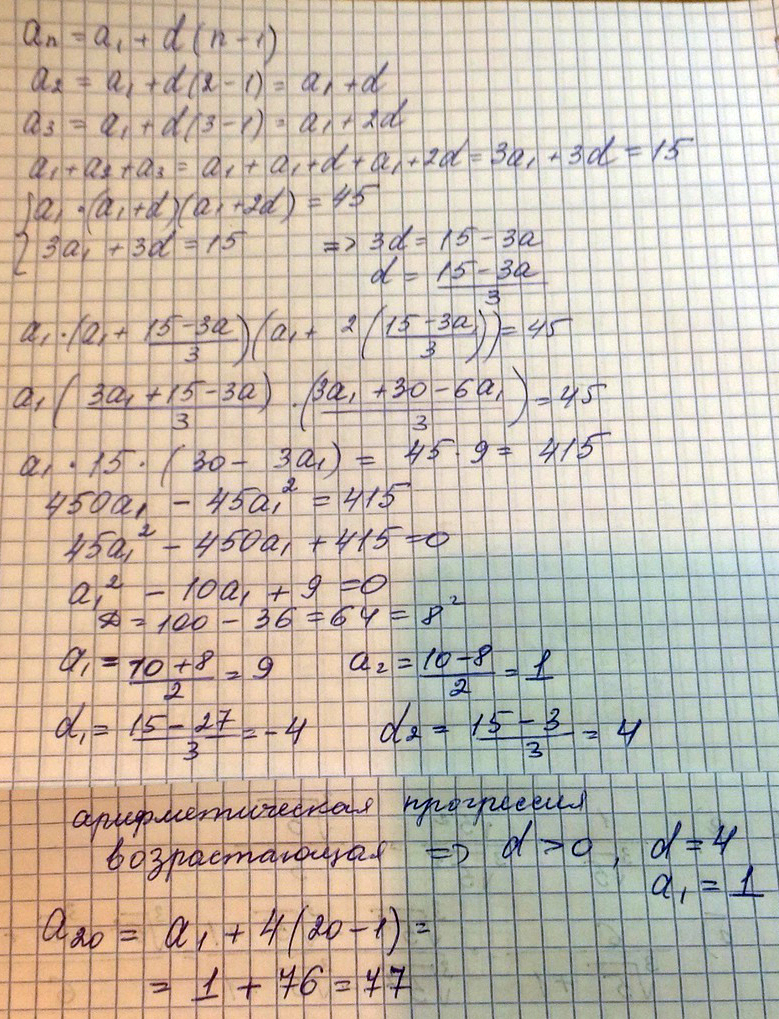 an = a1 + d(n-1)
a2 = a1 + d(2-1) = a1 + d
a3 = a1 + d(3-1) = a1 + 2d
a1 + a2 + a3 = a1 + a1 + d + a1 + 2d = 3a1 + 3d = 15
{ a1 · (a1 + d)(a1 + 2d) = 45
3a1 + 3d = 15 => 3d = 15 - 3a
d = (15 - 3a)/3
a1 · (a1 + (15 - 3a)/3)(a1 + 2((15 - 3a1)/3)) = 45
a1 ((3a1 + 15 - 3a)/3) · ((3a1 + 30 - 6a1)/3) = 45
a1 · 15 · (30 - 3a1) = 45 · 9 = 415
450a1 - 45a1² = 415
45a1² - 450a1 + 415 = 0
a1² - 10a1 + 9 = 0
D = 100 - 36 = 64 = 8²
a1 = (10 + 8)/2 = 9 a2 = (10 - 8)/2 = 1
d1 = (15 - 27)/3 = -4 d2 = (15 - 3)/3 = 4
арифметическая прогрессия
возрастающая => d > 0, d = 4
a1 = 1
a20 = a1 + 4(20 - 1) =
= 1 + 76 = 77